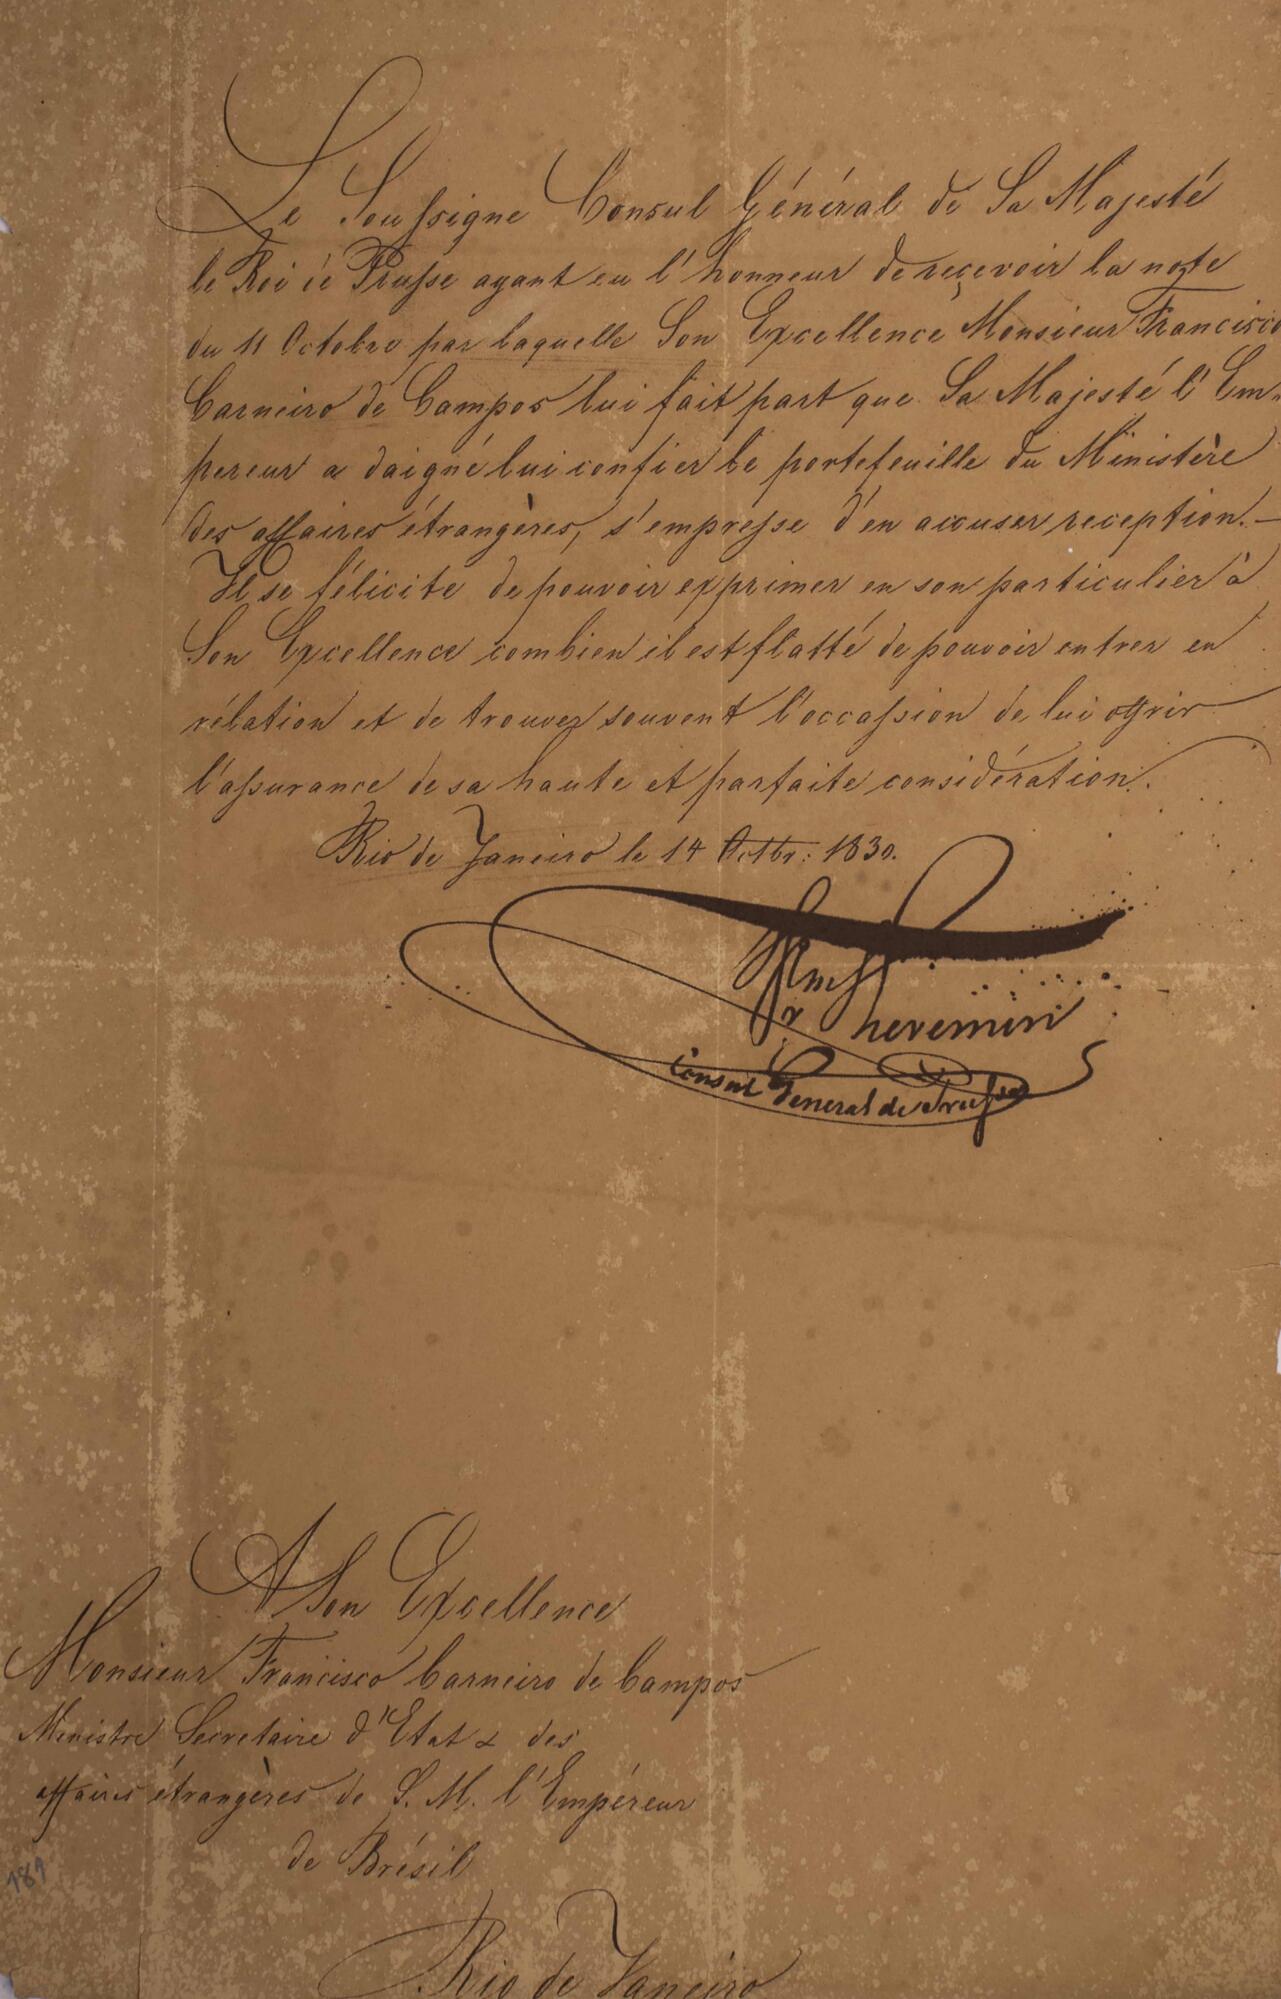 Le Soussigne Consul Général de Sa Majesté
le Roi de Prusse ayant eu l'honneur de reçevoir la note
du 11 Octobre par laquelle Son Excellence Monsieur Francisco
Carneiro de Campos lui fait part que Sa Majesté l'Em-
pereur a daigné lui confier le portefeuille du Ministère
des affaires étrangères, s'empresse d'en accuser reception. –
Il se félicite de pouvoir exprimer en son particulier à
Son Excellence combien il est flatté de pouvoir entrer en
rélation et de trouver souvent l'occassion de lui offrir
l'assurance de sa haute et parfaite considération.
Rio de Janeiro le 14 Octbr: 1830.
Theremin
Consul General de Prusse
A Son Excellence
Monsieur Francisco Carneiro de Campos
Ministre Secretaire d'Etat & des
affaires étrangères de S. M. l'Empéreur
de Brésil
Rio de Janeiro
181